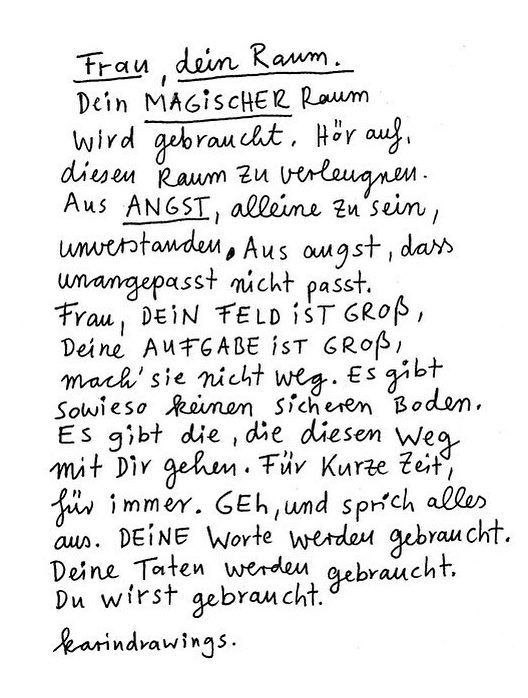 Frau, dein Raum.
Dein MAGiSCHER Raum
wird gebraucht. Hör auf,
diesen Raum zu verleugnen.
Aus ANGST, alleine zu sein,
unverstanden. Aus angst, dass
unangepasst nicht passt.
Frau, DEiN FELD iST GROß,
Deine AUFGABE iST GROß,
mach' sie nicht weg. Es gibt
sowieso keinen sicheren Boden.
Es gibt die, die diesen Weg
mit Dir gehen. Für Kurze Zeit,
für immer. GEh, und sprich alles
aus. DEiNE Worte werden gebraucht.
Deine Taten werden gebraucht.
Du wirst gebraucht.
karindrawings.